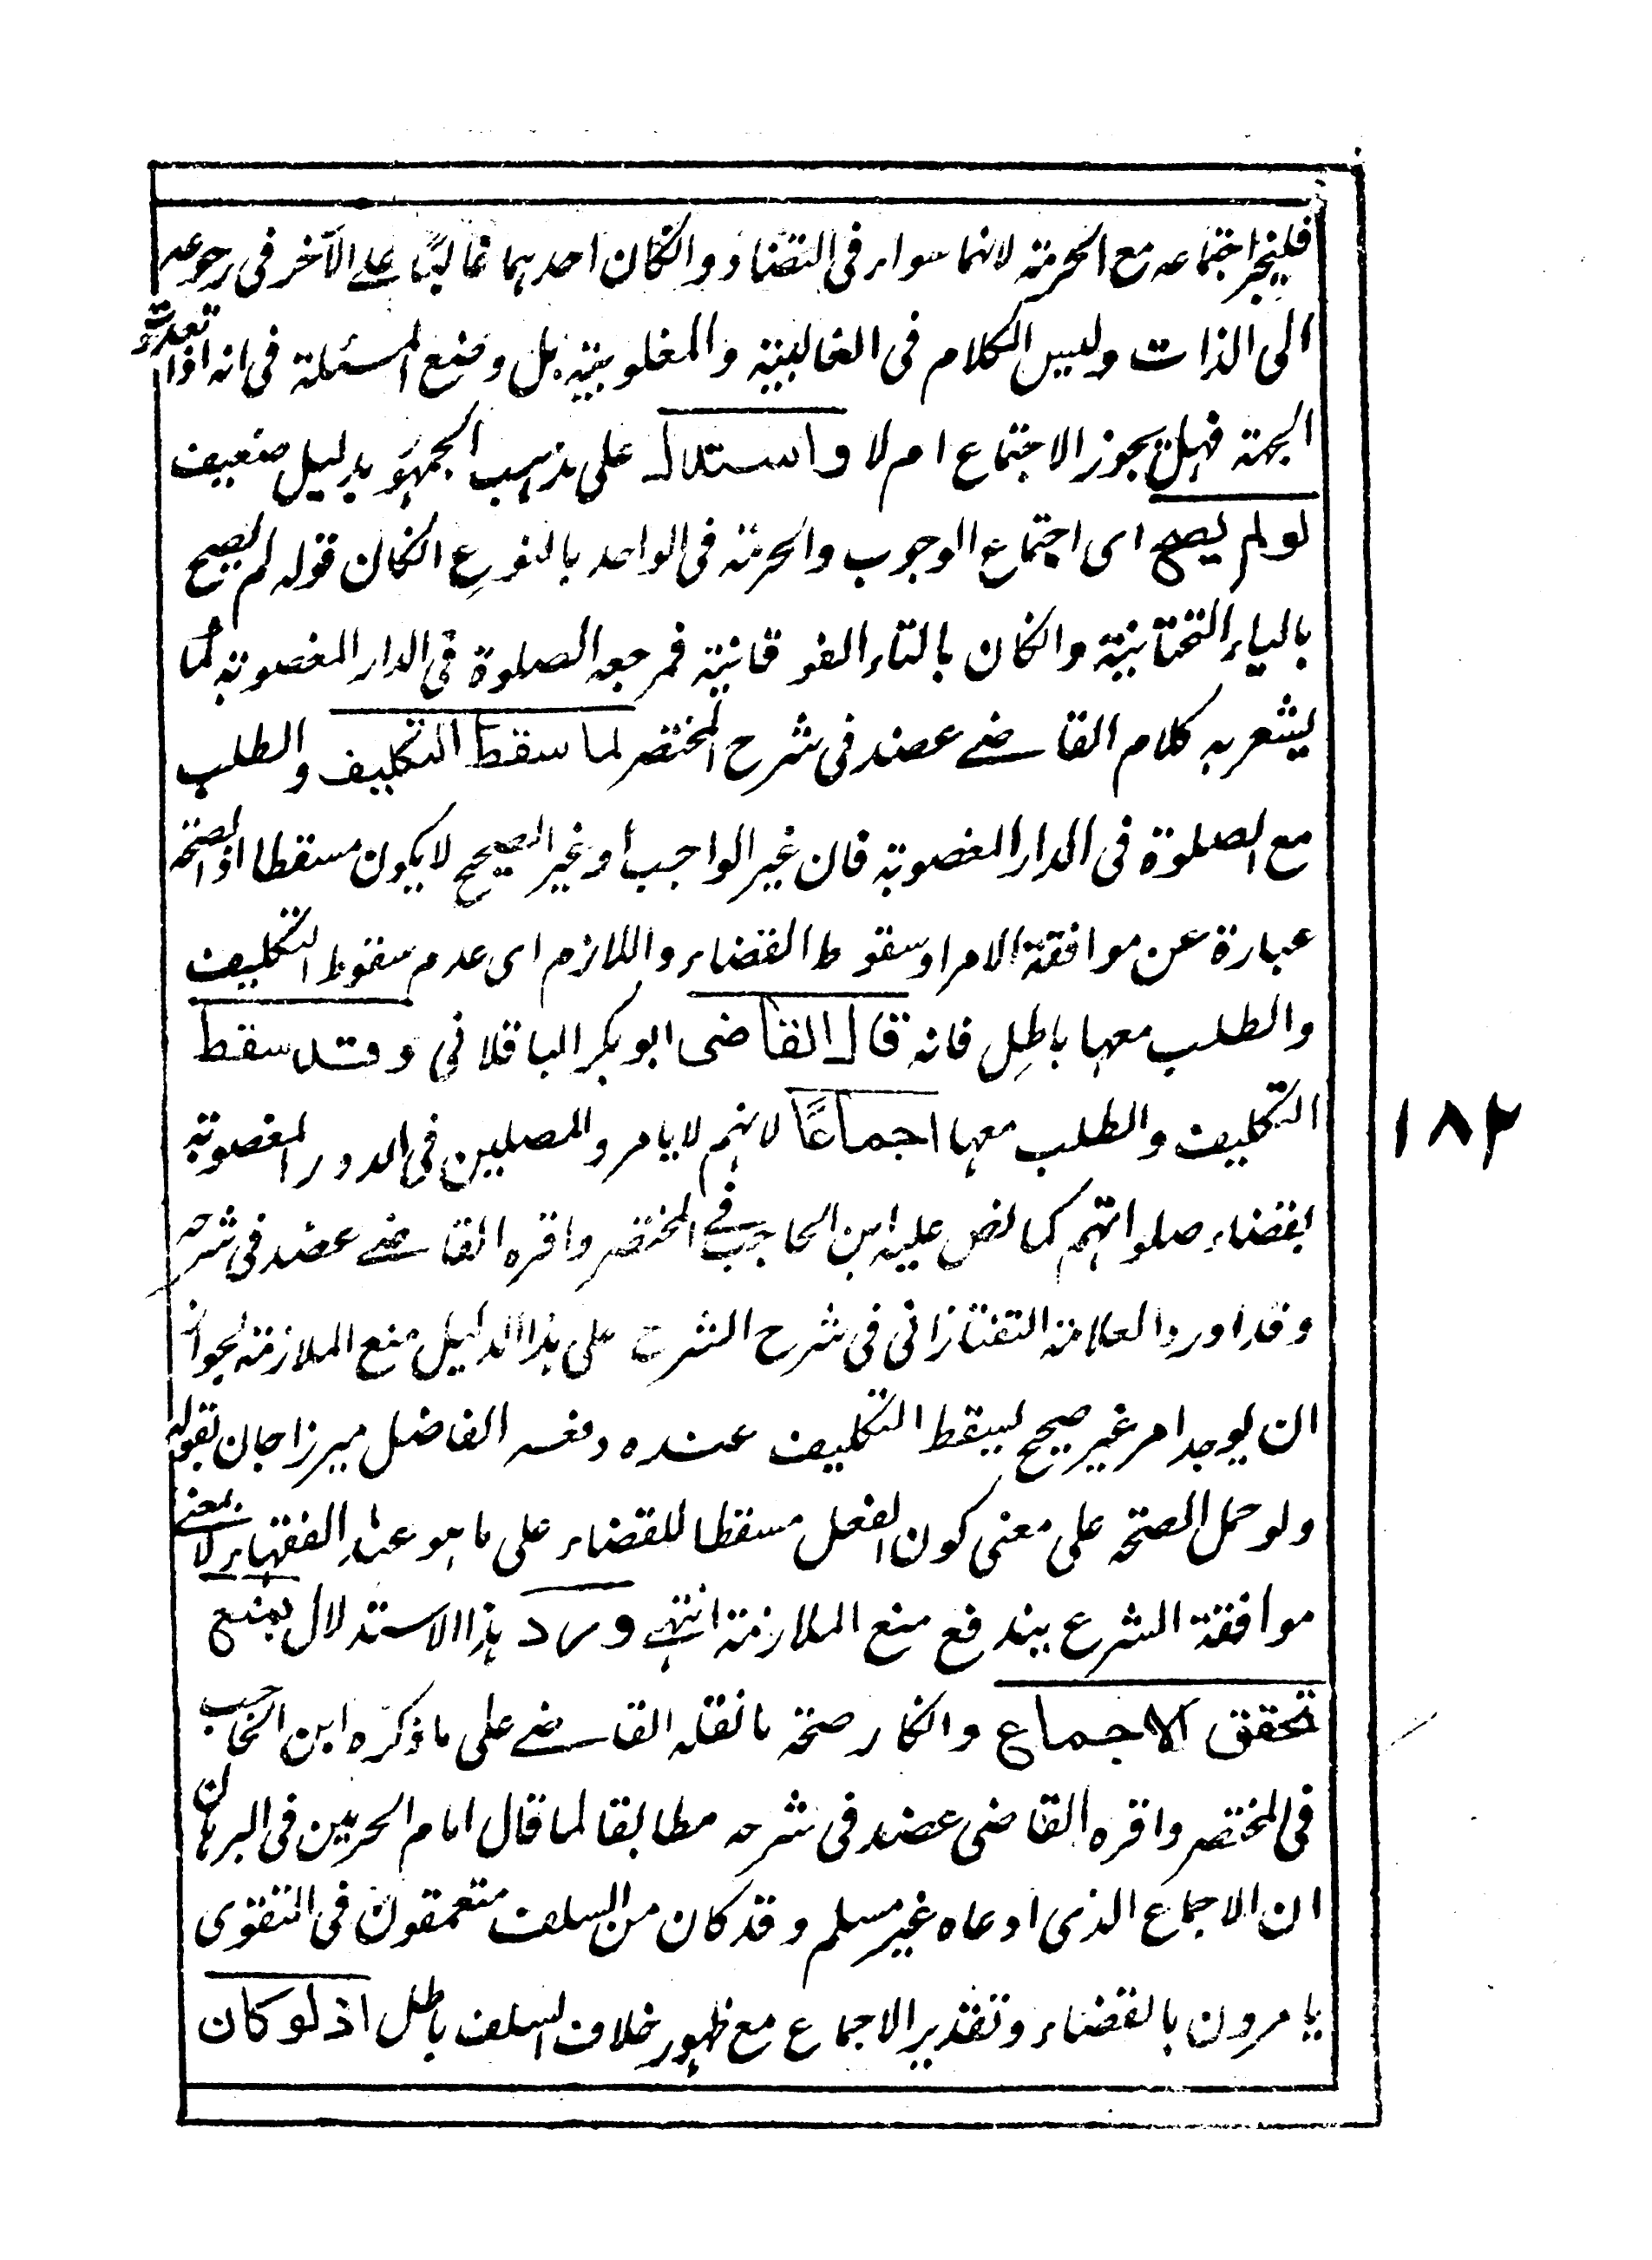 فليجز اجتماعه مع الحرمة لانهما سواء فى التضاد والكان احدهما غالبًا على الآخر فى رجوعه
الى الذات وليس الكلام فى الغالبية والمغلوبية بل وضع المسئلة فى انه اذا تعددت
الجهة فهل يجوز الاجتماع ام لا واستدل على مذهب الجمهور بدليل ضعيف
لو لم يصح اى اجتماع الوجوب والحرمة فى الواحد بالنوع الكان قوله لم يصح
بالياء التحتانية والكان بالتاء الفوقانية فمرجعه الصلوة فى الدار المغصوبة كما
يشعر به كلام القاضى عضد فى شرح المختصر لما سقط التكليف والطلب
مع الصلوة فى الدار المغصوبة فان غير الواجب أو غير الصحيح لا يكون مسقطا اذ الصحة
عبارة عن موافقة الامر او سقوط القضاء واللازم اى عدم سقوط التكليف
والطلب معها باطل فانه قال القاضى ابو بكر الباقلانى وقد سقط
التكليف والطلب معها اجماعًا لانهم لا يامرو المصلين فى الدور المغصوبة
بقضاء صلواتهم كما نص عليه ابن الحاجب فى المختصر واقره القاضى عضد فى شرحه
وقد اورد العلامة التفتازانى فى شرح الشرح على هذا الدليل منع الملازمة لجواز
ان يوجد امر غير صحيح ليسقط التكليف عنده دفعه الفاضل ميرزا جان بقوله
ولو حمل الصحة على معنى كون الفعل مسقطا للقضاء على ما هو عند الفقهاء لا بمعنى
موافقة الشرع يندفع منع الملازمة انتهى ورد هذا الاستدلال بمنع
تحقق الاجماع وانكار صحة ما نقله القاضى على ما ذكره ابن الحاجب
فى المختصر واقره القاضى عضد فى شرحه مطابقا لما قال امام الحرمين فى البرهان
ان الاجماع الذى ادعاه غير مسلم وقد كان من السلف متعمقون فى التقوى
يامرون بالقضاء وتقدير الاجماع مع ظهور خلاف السلف باطل اذ لو كان
١٨٢